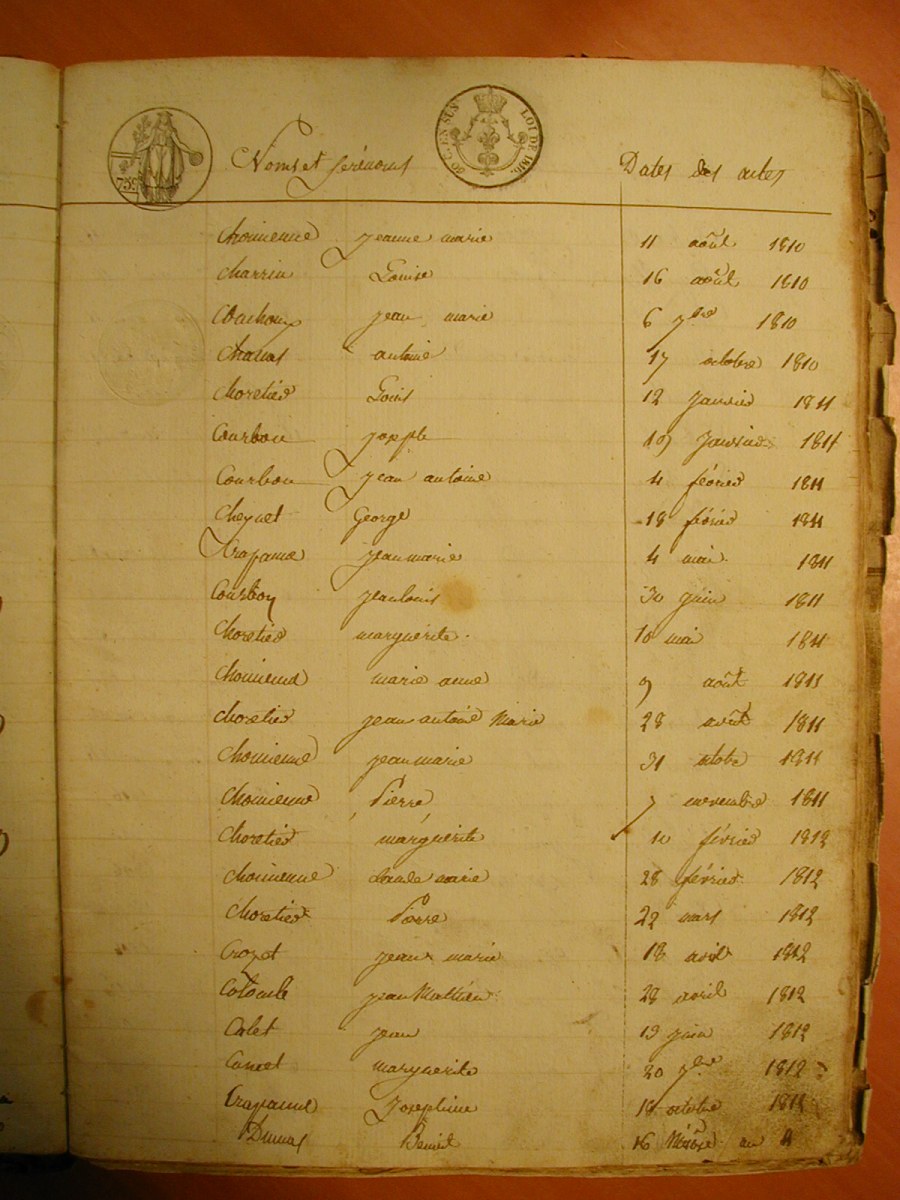 75c
60 C. EN SUS LOI DE 1816.
Noms et prénoms Dates des actes
Chomienne jeanne marie 11 août 1810
Charrin Louise 16 août 1810
jean marie 6 7bre 1810
antoine 17 octobre 1810
Choretier Louis 12 janvier 1811
Courbon joseph 19 janvier 1811
Courbon jean antoine 4 février 1811
Cheynet George 18 février 1811
jean marie 4 mai 1811
Courbon jean louis 30 juin 1811
Choretier marguerite 10 mai 1811
Chomienne marie anne 9 août 1811
Choretier jean antoine Marie 28 août 1811
Chomienne jean marie 31 octobre 1811
Chomienne Pierre 7 novembre 1811
Choretier marguerite 10 février 1812
Chomienne claude marie 28 février 1812
Choretier Pierre 22 mars 1812
Crozet jean marie 18 avril 1812
Colombe jean Mathieu 28 avril 1812
Calet jean 19 juin 1812
marguerite 20 7bre 1812
Josephine 18 octobre
Dumas Benoit 16 Nivôse an